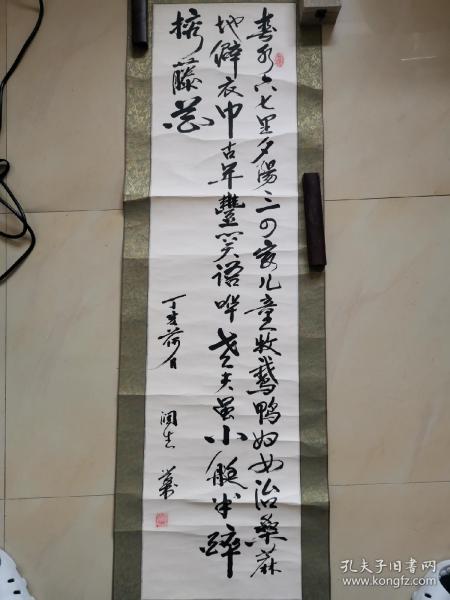 春水六七里夕陽三四家儿童牧鵝鴨妇女治桑麻
地僻衣巾古年豐笑语哗老夫小艇半醉
摘藤花
丁亥荷月
润生
孔夫子旧书网
www.kongfz.com